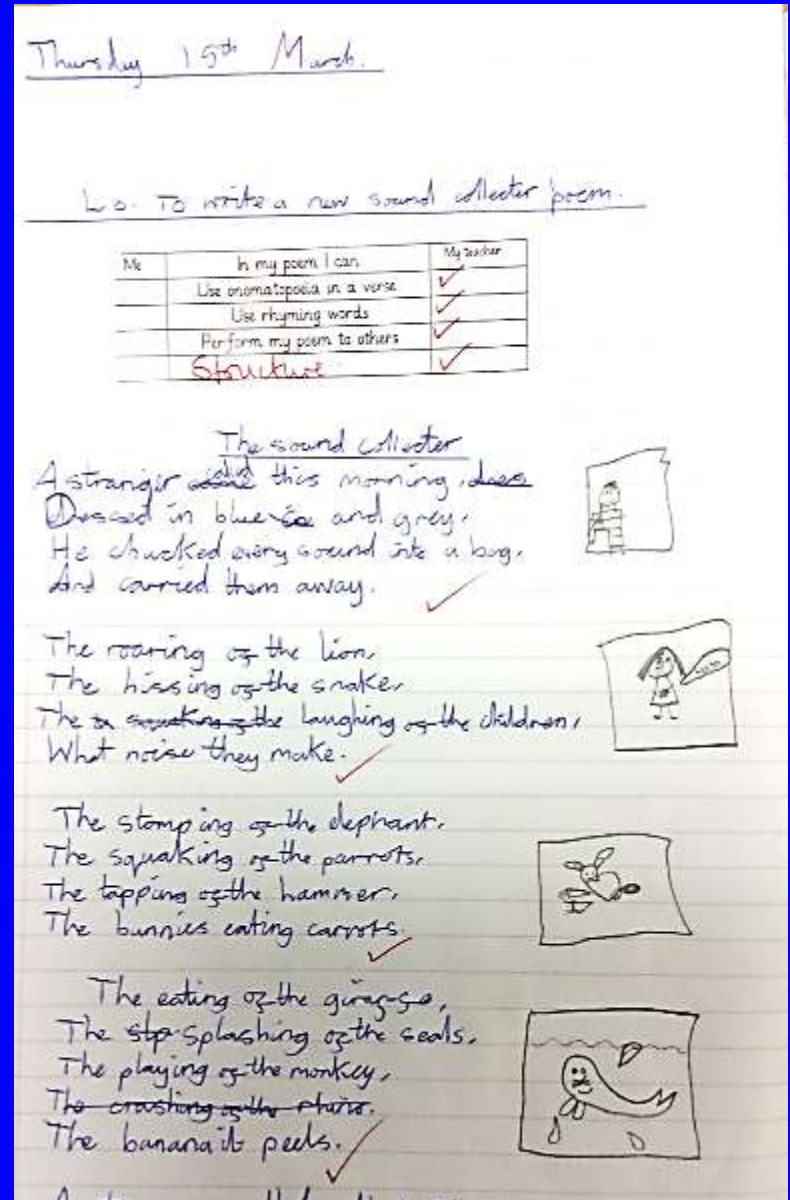 Thursday 15th March.
L.o. To write a new sound collecter poem.
Me In my poem I can My teacher
Use onomatopoeia in a verse
Use rhyming words
Perform my poem to others
Structure
The sound collecter
A stranger called this morning,
Dressed in blue and grey,
He chucked every sound into a bag,
And carried them away.
The roaring of the lion,
The hissing of the snake,
The laughing of the children,
What noise they make.
The stomping of the elephant,
The squaking of the parrots,
The tapping of the hammer,
The bunnies eating carrots.
The eating of the giraffe,
The splashing of the seals,
The playing of the monkey,
The crashing of the rhino.
The banana it peels.